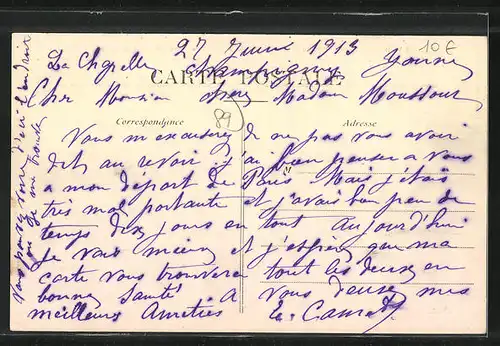 La Chapelle 27 Juin 1913
Champigny Yonne 10€
CARTE POSTALE
Cher Monsieur Chere Madame
89
Correspondance Adresse
Vous m excuserez de ne pas vous avoir
dit au revoir j ai bien penser a vous
a mon départ de Paris Mais j etais
très mal portante et j avais bien peu de
temps dix jours en tout Aujourd'hui
je vais mieux et j espere que ma
carte vous trouvera tout les deux en
bonne santé A vous deux mes
meilleurs Amitiés
Vous voyez